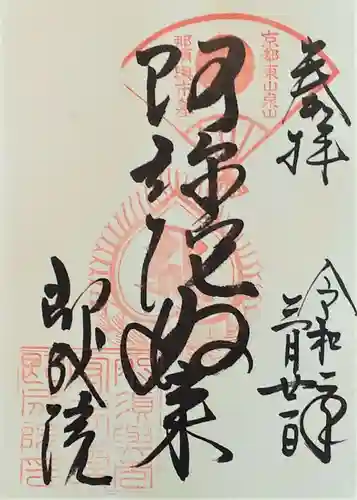 奉拝
令和二年
三月廿一日
京都東山泉山
那須與市公
阿弥陀如来
即成院